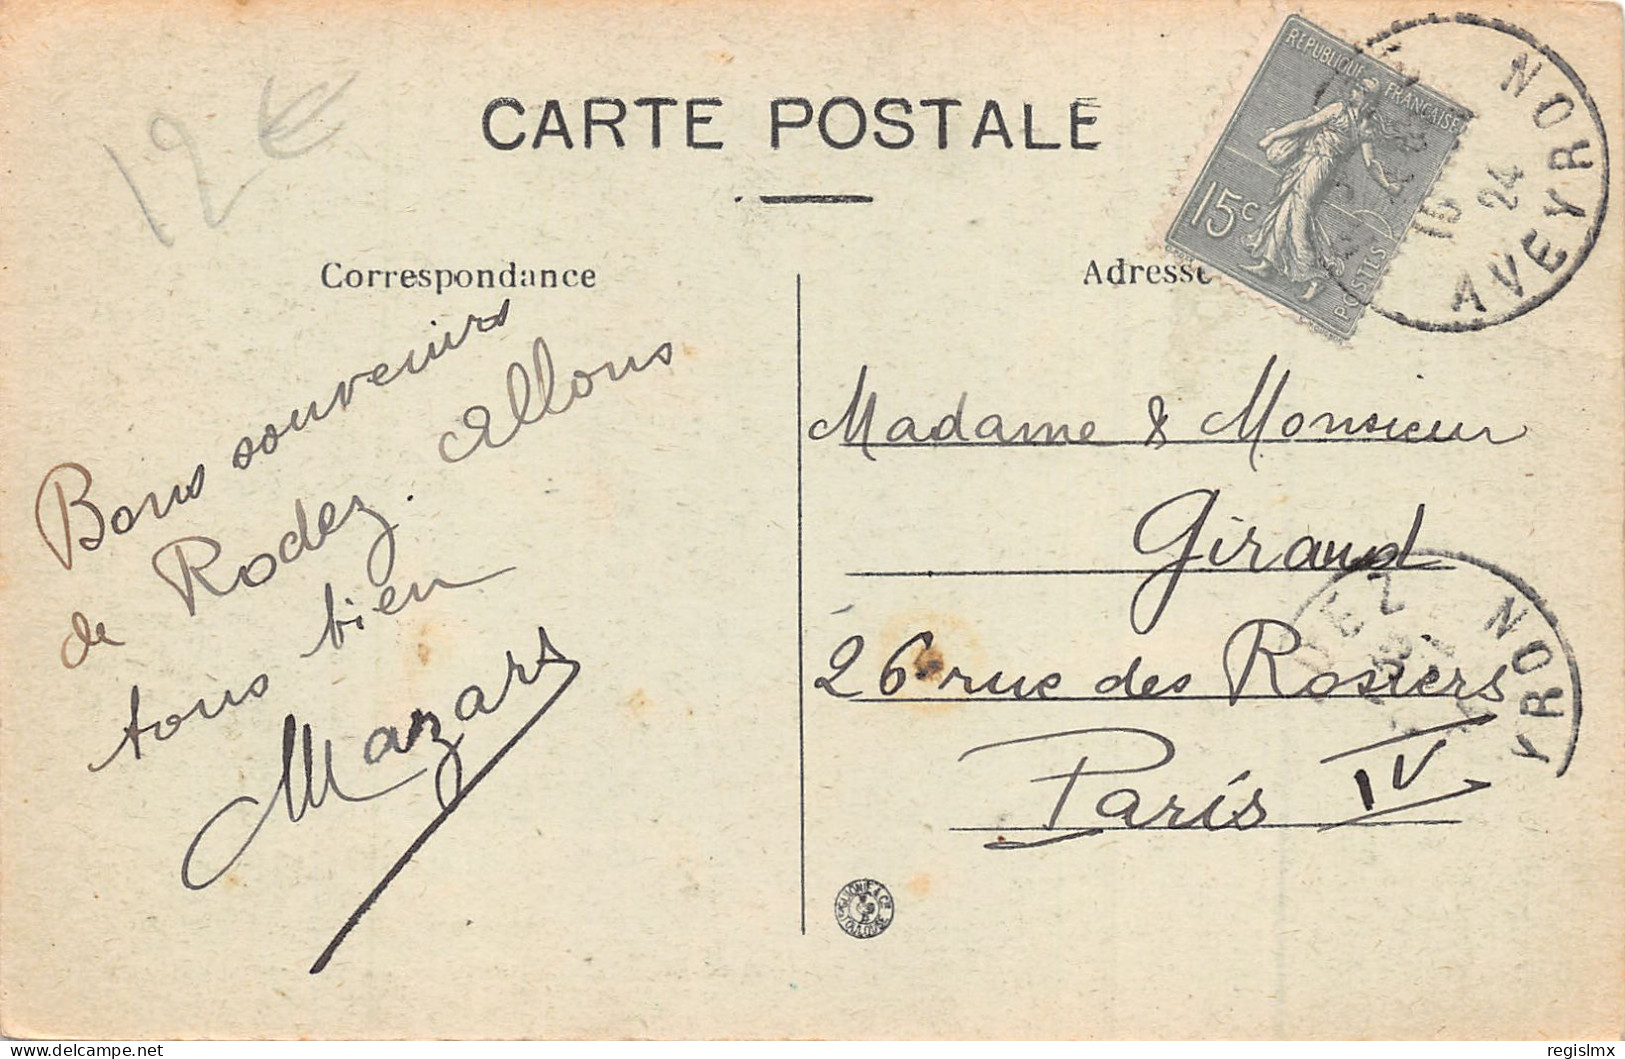 12€
CARTE POSTALE
Correspondance
Adresse
REPUBLIQUE FRANÇAISE
15c
POSTES
NORD
AVEYRON
15
24
Bons souvenirs
de Rodez. Allons
tous bien
Mazars
Madame & Monsieur
Giraud
26 rue des Rosiers
Paris IV
DEZ
YRON
TOULOUSE
delcampe.net
regislmx